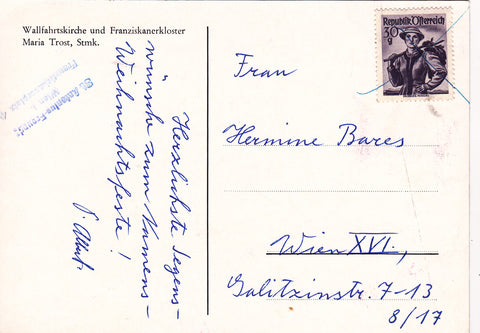 Wallfahrtskirche und Franziskanerkloster
Maria Trost, Stmk.
Herzlichste Segens-
wünsche zum Namens-
Weihnachtsfeste!
P. Albert
Republik Österreich
30
g
Frau
Hermine Bares
Wien XVI.,
Galitzinstr. 7-13
8/17